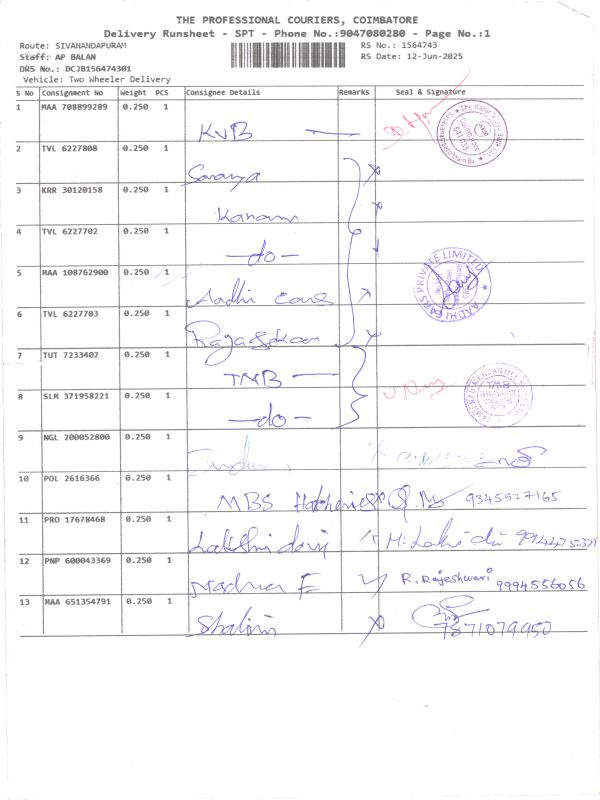 THE PROFESSIONAL COURIERS, COIMBATORE
Delivery Runsheet - SPT - Phone No.:9047080280 - Page No.:1
Route: SIVANANDAPURAM RS No.: 1564743
Staff: AP BALAN RS Date: 12-Jun-2025
DRS No.: DCJB156474301
Vehicle: Two Wheeler Delivery
S No Consignment No Weight PCS Consignee Details Remarks Seal & Signature
1 MAA 708899289 0.250 1 KVB
2 TVL 6227808 0.250 1 Saranya
3 KRR 30120158 0.250 1 Kanam
4 TVL 6227702 0.250 1 -do-
5 MAA 108762900 0.250 1 Aadhi Cars AADHI CARS PRIVATE LIMITED
6 TVL 6227703 0.250 1 Rajasekar
7 TUT 7233402 0.250 1 TMB
8 SLM 371958221 0.250 1 -do- TMB
9 NGL 200052800 0.250 1
10 POL 2616366 0.250 1 MBS Hatcheries 9345527165
11 PRO 17678468 0.250 1 Lakshmi
12 PNP 600043369 0.250 1 R. Rajeshwari 9994556056
13 MAA 651354791 0.250 1 Shalini 7871079950